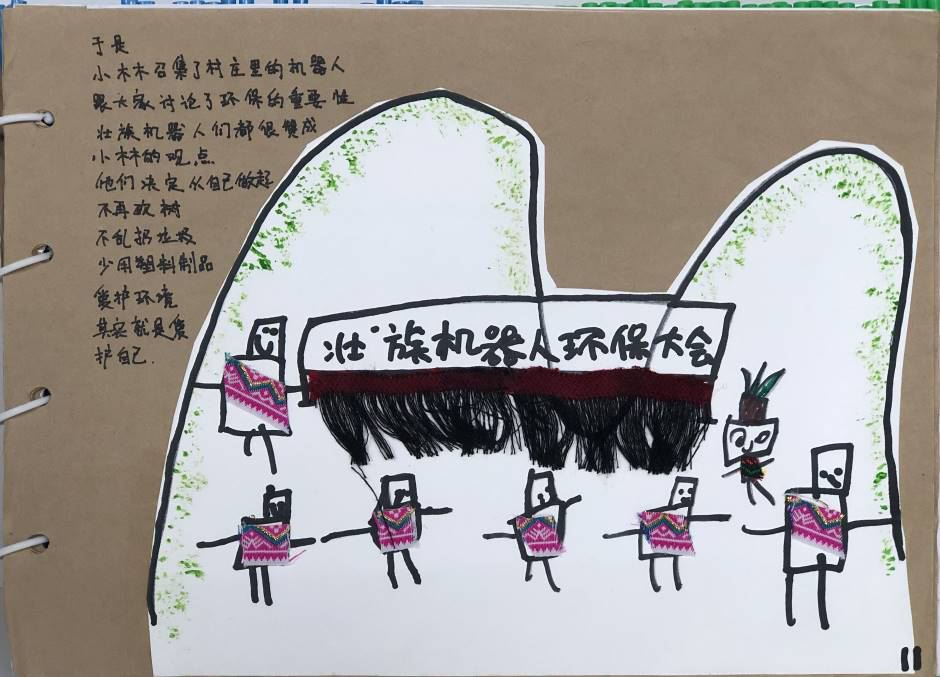 于是
小林林召集了村庄里的机器人
跟大家讨论了环保的重要性
壮族机器人们都很赞成
小林林的观点
他们决定从自己做起
不再砍树
不乱扔垃圾
少用塑料制品
爱护环境
其实就是爱
护自己.
壮族机器人环保大会
11